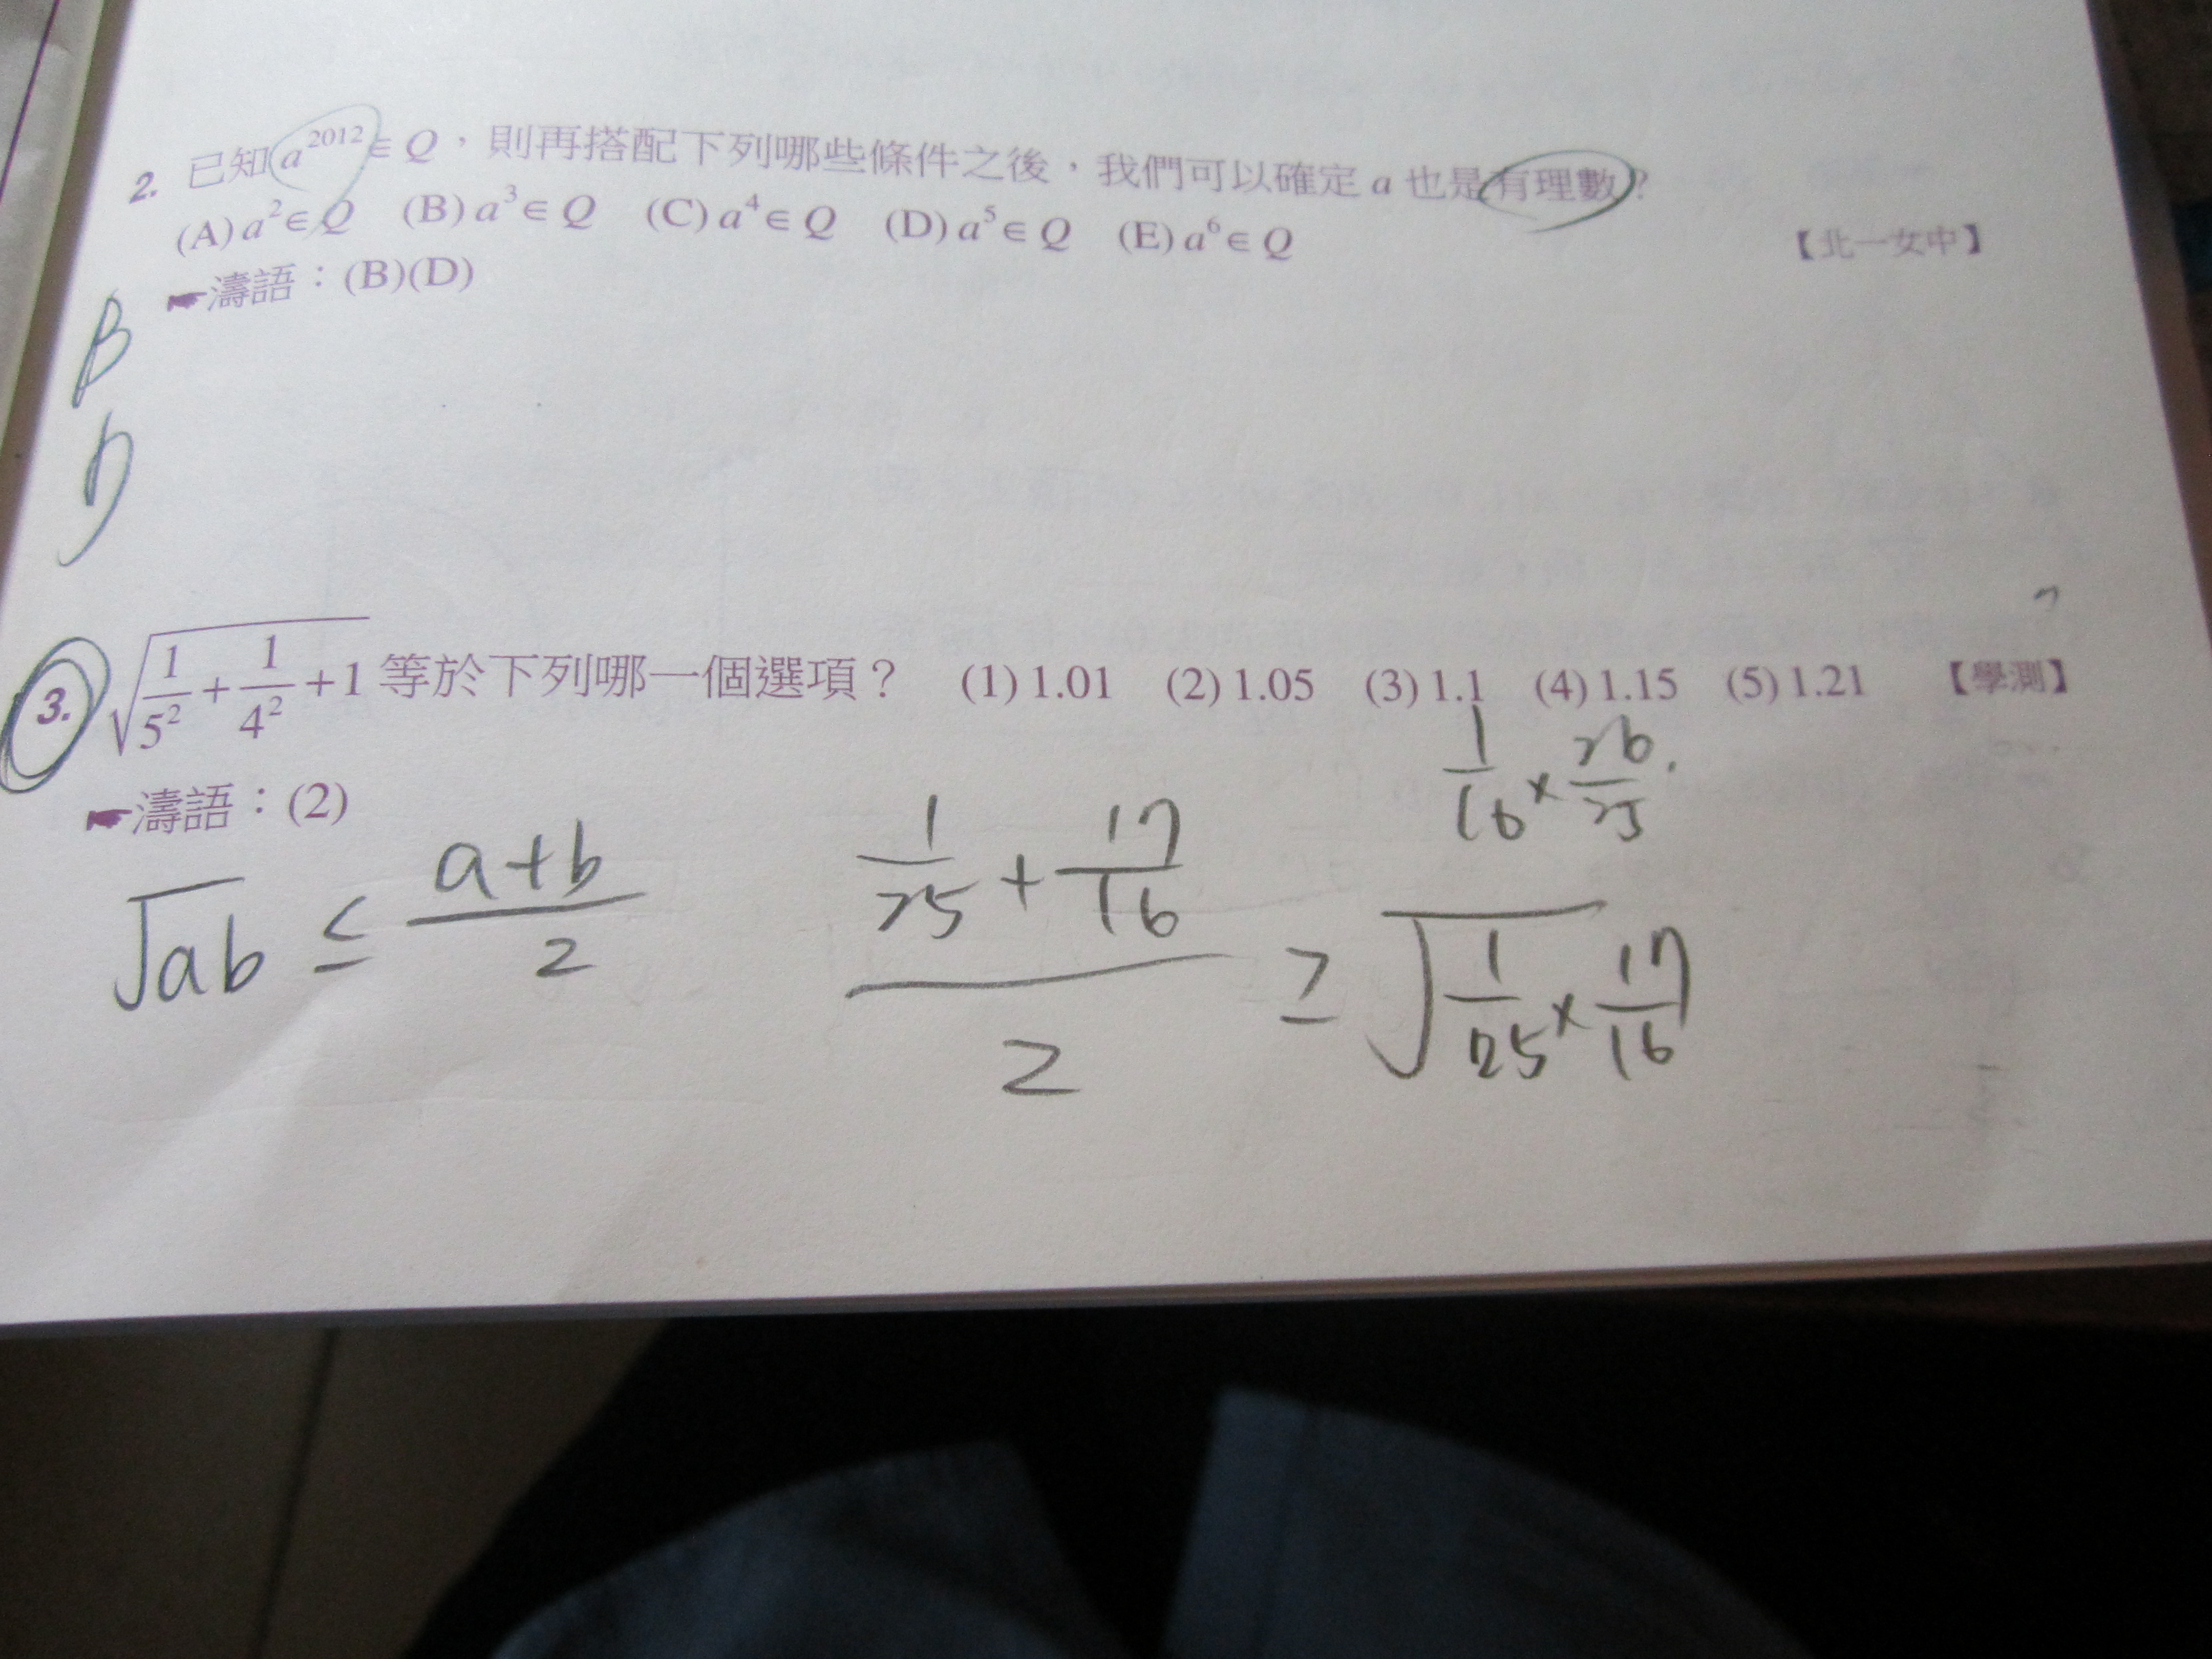 2. 已知 a^2012 ∈ Q，則再搭配下列哪些條件之後，我們可以確定 a 也是有理數？
(A) a^2 ∈ Q (B) a^3 ∈ Q (C) a^4 ∈ Q (D) a^5 ∈ Q (E) a^6 ∈ Q 【北一女中】
☛濤語：(B)(D)
B
D
3. √(1/5^2 + 1/4^2 + 1) 等於下列哪一個選項？ (1) 1.01 (2) 1.05 (3) 1.1 (4) 1.15 (5) 1.21 【學測】
☛濤語：(2)
1/16 × 26/25
√ab ≤ (a+b)/2
(1/25 + 17/16)/2 ≥ √(1/25 × 17/16)